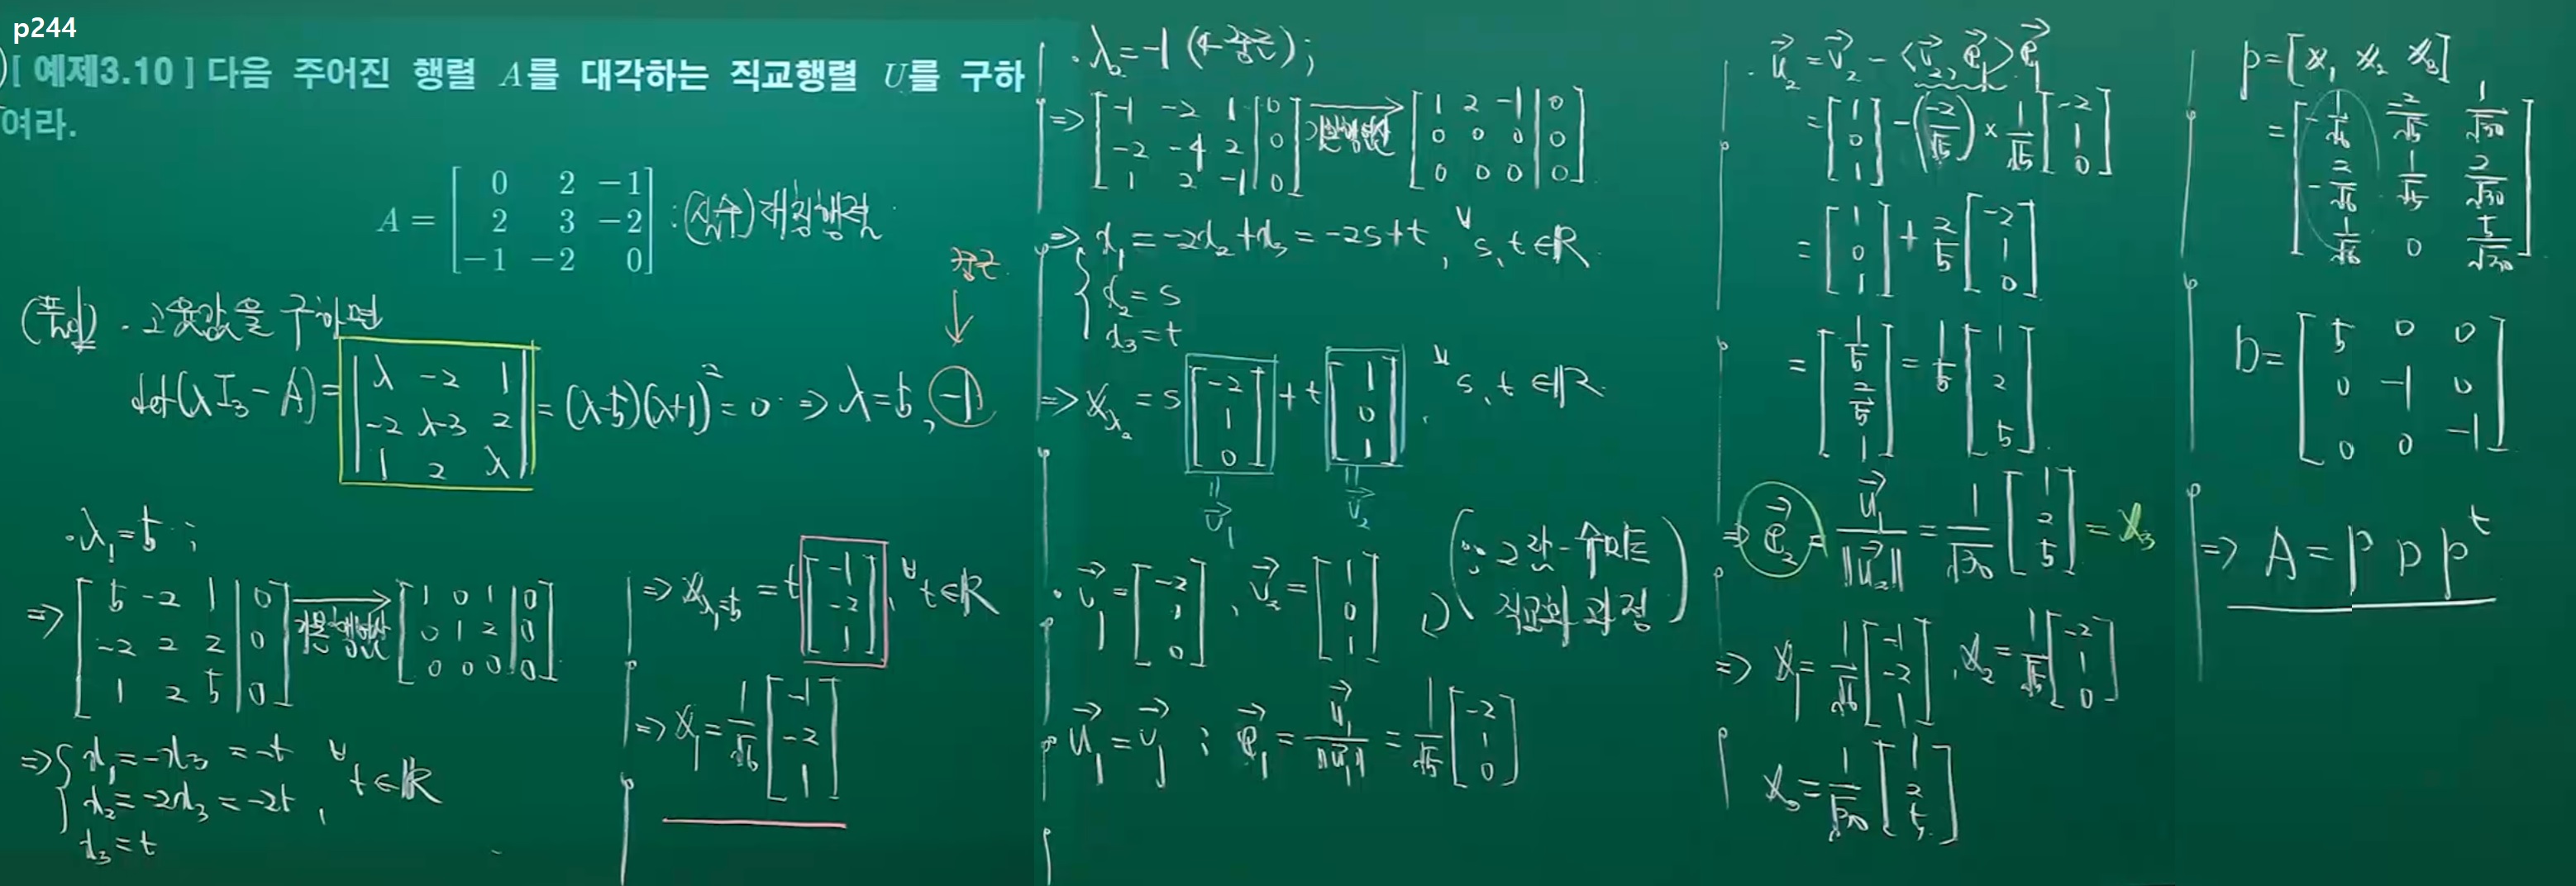 p244
[ 예제3.10 ] 다음 주어진 행렬 A를 대각하는 직교행렬 U를 구하
여라.
A = [ 0 2 −1 ; 2 3 −2 ; −1 −2 0 ] : (실수) 대칭행렬
중근
(풀이) · 고윳값을 구하면
det(λI₃ − A) = | λ −2 1 ; −2 λ−3 2 ; 1 2 λ | = (λ−5)(λ+1)² = 0 ⇒ λ = 5, −1
· λ₁ = 5 ;
⇒ [ 5 −2 1 | 0 ; −2 2 2 | 0 ; 1 2 5 | 0 ] → 기본행연산 [ 1 0 1 | 0 ; 0 1 2 | 0 ; 0 0 0 | 0 ]
⇒ { x₁ = −x₃ = −t
x₂ = −2x₃ = −2t , ∀t∈ℝ
x₃ = t
⇒ 𝕏_λ₁=5 = t [ −1 ; −2 ; 1 ] , ∀t∈ℝ
⇒ 𝕏₁ = 1/√6 [ −1 ; −2 ; 1 ]
· λ₂ = −1 (← 중근) ;
⇒ [ −1 −2 1 | 0 ; −2 −4 2 | 0 ; 1 2 −1 | 0 ] → 기본행연산 [ 1 2 −1 | 0 ; 0 0 0 | 0 ; 0 0 0 | 0 ]
⇒ { x₁ = −2x₂ + x₃ = −2s + t , ∀s, t∈ℝ
x₂ = s
x₃ = t
⇒ 𝕏_λ₂ = s [ −2 ; 1 ; 0 ] + t [ 1 ; 0 ; 1 ] , ∀s, t∈ℝ
‖ v⃗₁ ‖ v⃗₂
· v⃗₁ = [ −2 ; 1 ; 0 ] , v⃗₂ = [ 1 ; 0 ; 1 ] , ( ∵ 그람-슈미트
직교화 과정 )
u⃗₁ = v⃗₁ ; e⃗₁ = u⃗₁/‖u⃗₁‖ = 1/√5 [ −2 ; 1 ; 0 ]
· u⃗₂ = v⃗₂ − <v⃗₂, e⃗₁> e⃗₁
= [ 1 ; 0 ; 1 ] − (−2/√5) × 1/√5 [ −2 ; 1 ; 0 ]
= [ 1 ; 0 ; 1 ] + 2/5 [ −2 ; 1 ; 0 ]
= [ 1/5 ; 2/5 ; 1 ] = 1/5 [ 1 ; 2 ; 5 ]
⇒ e⃗₂ = u⃗₁/‖u⃗₂‖ = 1/√30 [ 1 ; 2 ; 5 ] = 𝕏₃
⇒ 𝕏₁ = 1/√6 [ −1 ; −2 ; 1 ] , 𝕏₂ = 1/√5 [ −2 ; 1 ; 0 ]
𝕏₃ = 1/√30 [ 1 ; 2 ; 5 ]
P = [ 𝕏₁ 𝕏₂ 𝕏₃ ]
= [ −1/√6 −2/√5 1/√30 ; −2/√6 1/√5 2/√30 ; 1/√6 0 5/√30 ]
D = [ 5 0 0 ; 0 −1 0 ; 0 0 −1 ]
⇒ A = P D Pᵗ